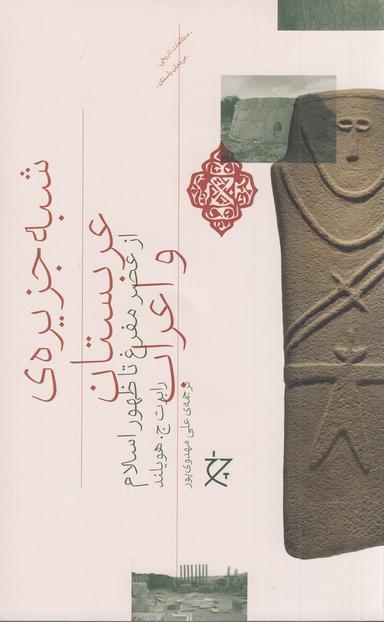 مطالعات تاریخی،
مردمان باستان،
شبه‌جزیره‌ی
عربستان
و اعراب
از عصر مفرغ تا ظهور اسلام
رابرت ج. هویلند
ترجمه‌ی علی مهدوی‌پور